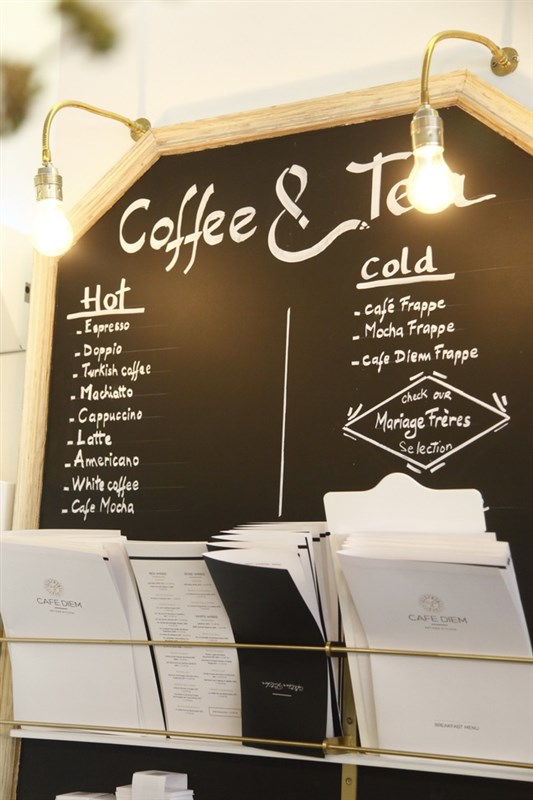 Coffee & Tea
Hot
- Espresso
- Doppio
- Turkish coffee
- Machiatto
- Cappuccino
- Latte
- Americano
- White coffee
- Cafe Mocha
Cold
- Café Frappe
- Mocha Frappe
- Cafe Diem Frappe
check our
Mariage Frères
Selection
CAFE DIEM
CAFE DIEM
BREAKFAST MENU